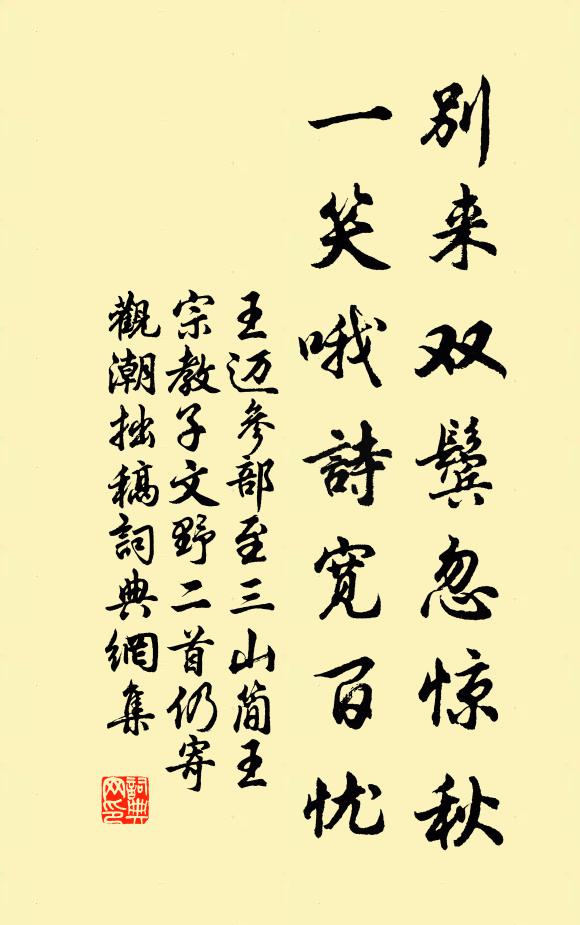 别来双鬓忽惊秋
一笑哦詩宽百忧
王迈參部至三山简王
宗教子文野二首仍寄
觀潮拙稿詞典網集
詞典
网印